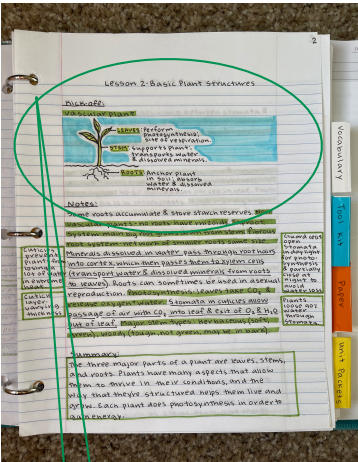 2
Lesson 2-Basic Plant Structures
Kick-off:
Vascular plant
LEAVES: Perform
photosynthesis;
site of respiration.
STEM: Supports plant;
transports water
& dissolved minerals.
ROOTS: Anchor plant
in soil; absorb
water & dissolved
minerals.
Notes:
Some roots accumulate & store starch reserves.
vascular plants
roots have
system main big root grows from stem
Minerals dissolved in water pass through root hairs
into cortex, which then passes them to xylem cells
(transport water & dissolved minerals from roots
to leaves). Roots can sometimes be used in asexual
reproduction. Photosynthetic leaves take CO2 &
release oxygen & water. Stomata in cuticles allow
passage of air with CO2 into leaf & exit of O2 & H2O
out of leaf. Major stem types: herbaceous (soft,
green), woody (tough, not green, may be in bark)
Cuticles
prevent
plant from
losing a
lot of water
in extreme
heats
Cuticle
layers
vary in
thickness
Guard cells
open
stomata
in daylight
for photo-
synthesis &
partially
close at
night to
avoid
water loss
Plants
lose 90%
water
through
stomata.
Summary:
The three major parts of a plant are leaves, stems,
and roots. Plants have many aspects that allow
them to thrive in their conditions, and the
way that they're structured helps them live and
grow. Each plant does photosynthesis in order to
gain energy.
Vocabulary
Tool Kit
Paper
Unit Packets